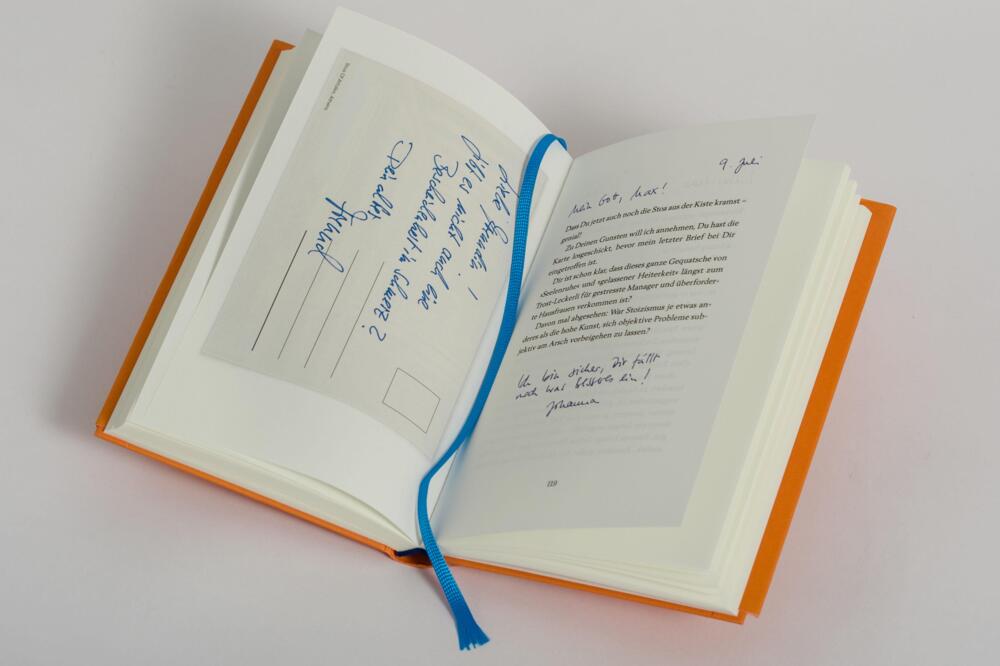 Stoa Of Attalos, Athens
Freundin!
Gibt es nicht auch eine
in Schmerz?
Dein alter
Freund
9. Juli
Mein Gott, Max!
Dass Du jetzt auch noch die Stoa aus der Kiste kramst –
genial!
Zu Deinen Gunsten will ich annehmen, Du hast die
Karte losgeschickt, bevor mein letzter Brief bei Dir
eingetroffen ist.
Dir ist schon klar, dass dieses ganze Gequatsche von
»Seelenruhe« und »gelassener Heiterkeit« längst zum
Trost-Lockerli für gestresste Manager und überforder-
te Hausfrauen verkommen ist?
Davon mal abgesehen: War Stoizismus je etwas an-
deres als die hohe Kunst, sich objektive Probleme sub-
jektiv am Arsch vorbeigehen zu lassen?
Ich bin sicher, Dir fällt
noch was Besseres ein!
Johanna
119